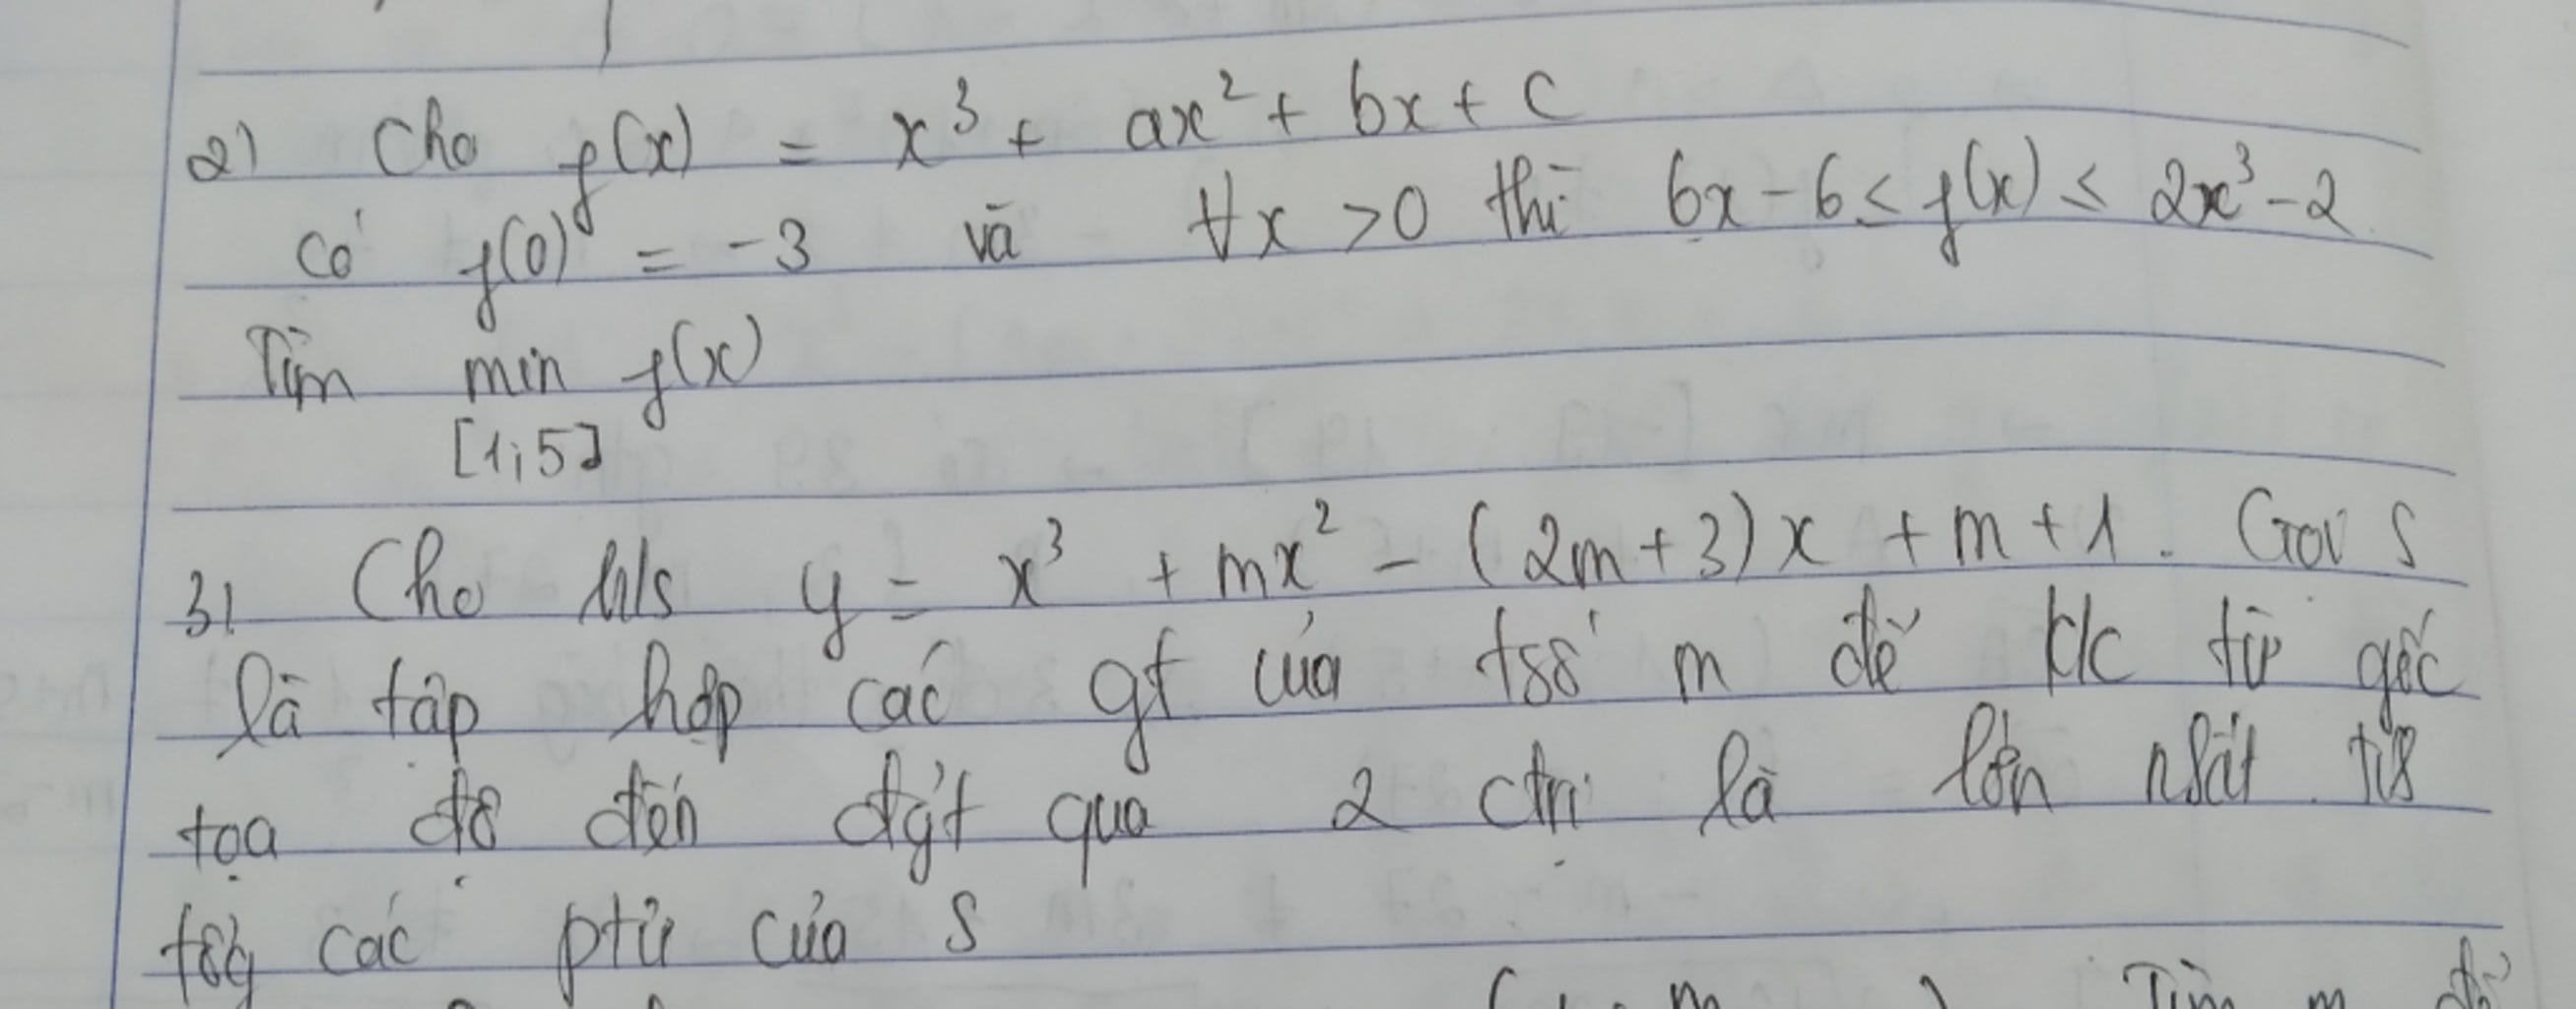 2) Cho f(x) = x³ + ax² + bx + c
có f(0) = -3 và ∀x > 0 thì 6x - 6 ≤ f(x) ≤ 2x³ - 2
Tìm min f(x)
[1;5]
3) Cho h/s y = x³ + mx² - (2m + 3)x + m + 1. Gọi S
là tập hợp các gt của tsố m để k/c từ gốc
tọa độ đến đgt qua 2 ctrị là lớn nhất
tổg các ptử của S
Tìm m để